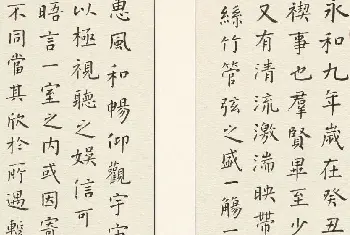 永和九年歲在癸丑
禊事也羣賢畢至少
又有清流激湍映帶
絲竹管弦之盛一觴
惠風和暢仰觀宇宙
以極視聽之娛信可
晤言一室之內或因寄
不同當其欣於所遇暫